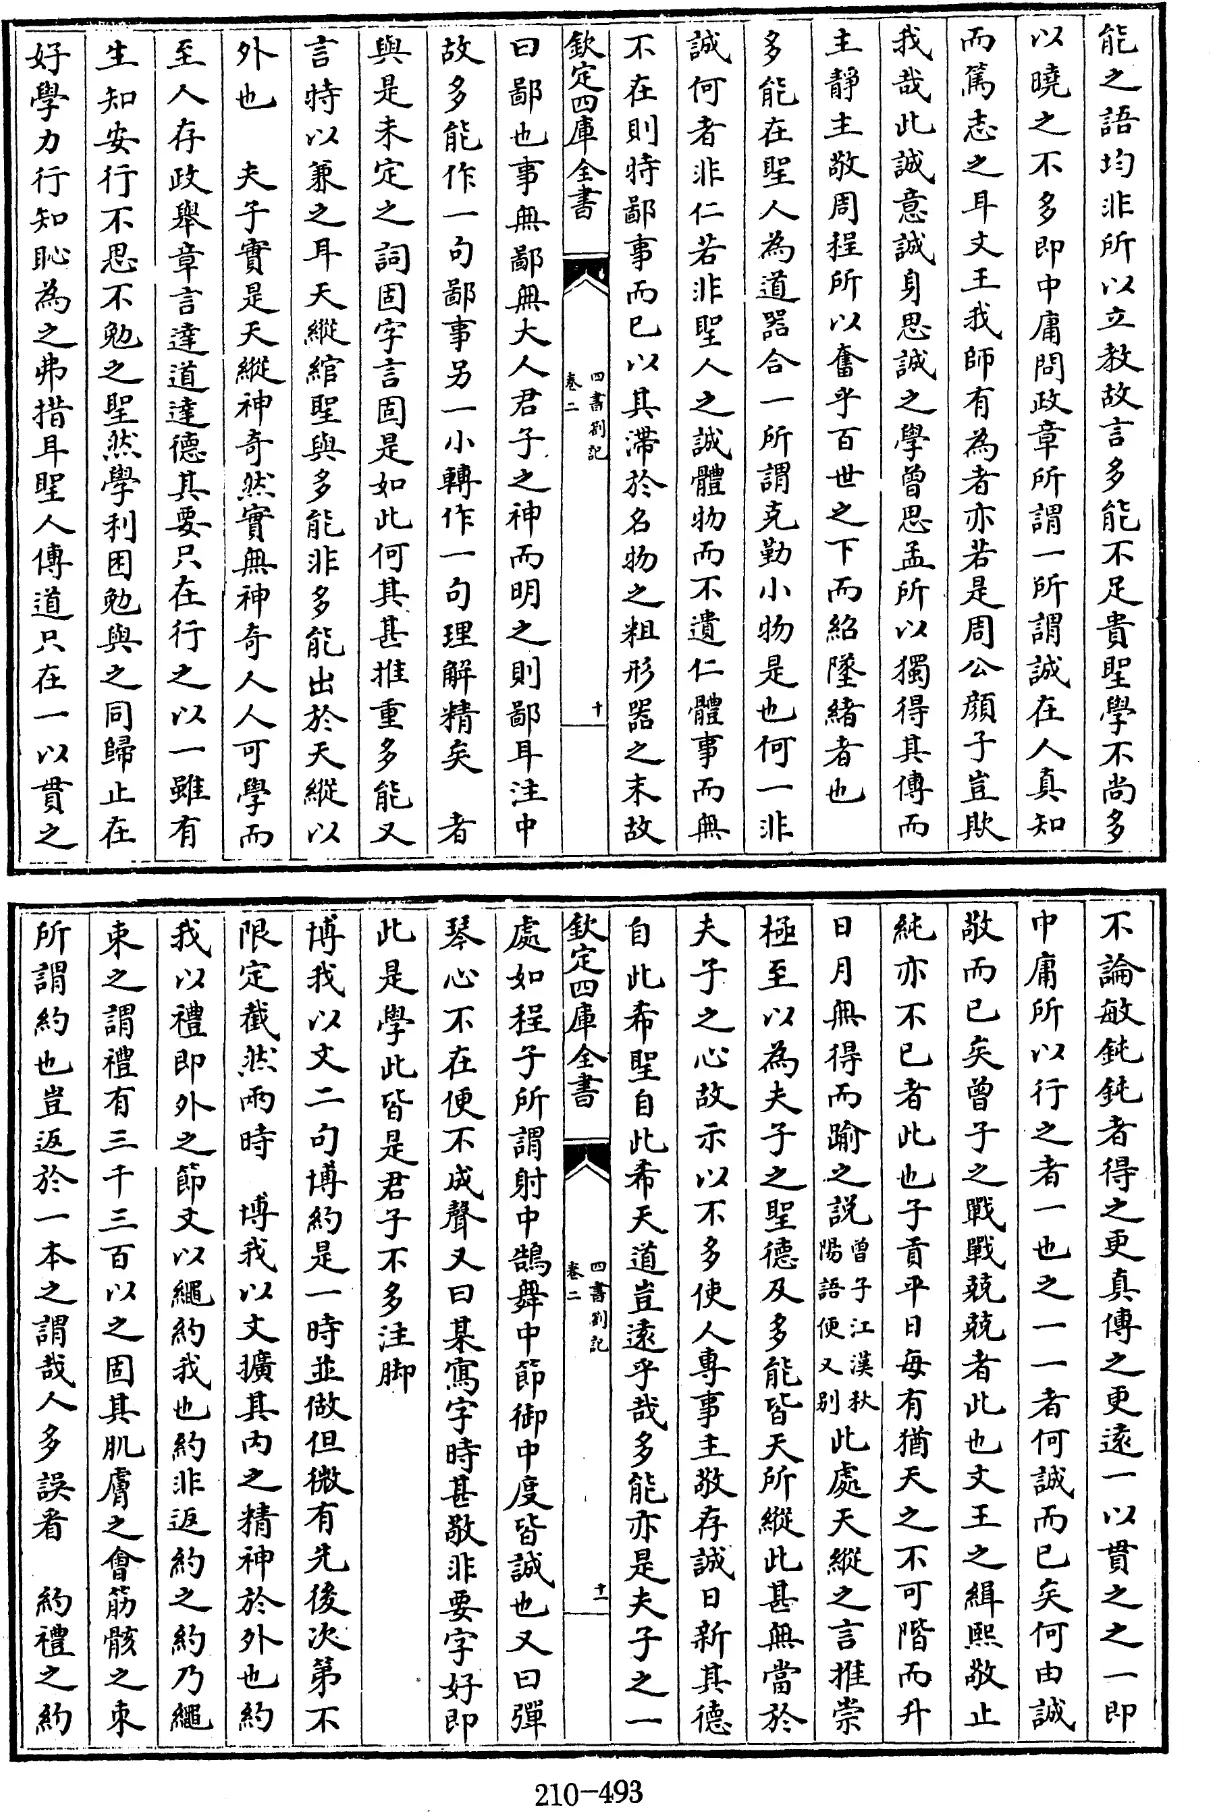 能之語均非所以立教故言多能不足貴聖學不尚多
以曉之不多即中庸問政章所謂一所謂誠在人真知
而篤志之耳文王我師有為者亦若是周公顔子豈欺
我哉此誠意誠身思誠之學曾思孟所以獨得其傳而
主靜主敬周程所以奮乎百世之下而紹墜緒者也
多能在聖人為道器合一所謂克勤小物是也何一非
誠何者非仁若非聖人之誠體物而不遺仁體事而無
不在則特鄙事而已以其滯於名物之粗形器之末故
欽定四庫全書
四書劄記
卷二
十
曰鄙也事無鄙無大人君子之神而明之則鄙耳注中
故多能作一句鄙事另一小轉作一句理解精矣　者
與是未定之詞固字言固是如此何其甚推重多能又
言特以兼之耳天縱綰聖與多能非多能出於天縱以
外也　夫子實是天縱神奇然實無神奇人人可學而
至人存政舉章言達道達德其要只在行之以一雖有
生知安行不思不勉之聖然學利困勉與之同歸止在
好學力行知恥為之弗措耳聖人傳道只在一以貫之
不論敏鈍鈍者得之更真傳之更遠一以貫之之一即
中庸所以行之者一也之一一者何誠而已矣何由誠
敬而已矣曾子之戰戰兢兢者此也文王之緝熙敬止
純亦不已者此也子貢平日每有猶天之不可階而升
日月無得而踰之說曾子江漢秋陽語便又别此處天縱之言推崇
極至以為夫子之聖德及多能皆天所縱此甚無當於
夫子之心故示以不多使人專事主敬存誠日新其德
自此希聖自此希天道豈遠乎哉多能亦是夫子之一
欽定四庫全書
四書劄記
卷二
十一
處如程子所謂射中鵠舞中節御中度皆誠也又曰彈
琴心不在便不成聲又曰某寫字時甚敬非要字好即
此是學此皆是君子不多注脚
博我以文二句博約是一時並做但微有先後次第不
限定截然兩時　博我以文擴其内之精神於外也約
我以禮即外之節文以繩約我也約非返約之約乃繩
束之謂禮有三千三百以之固其肌膚之會筋骸之束
所謂約也豈返於一本之謂哉人多誤看　約禮之約
210-493